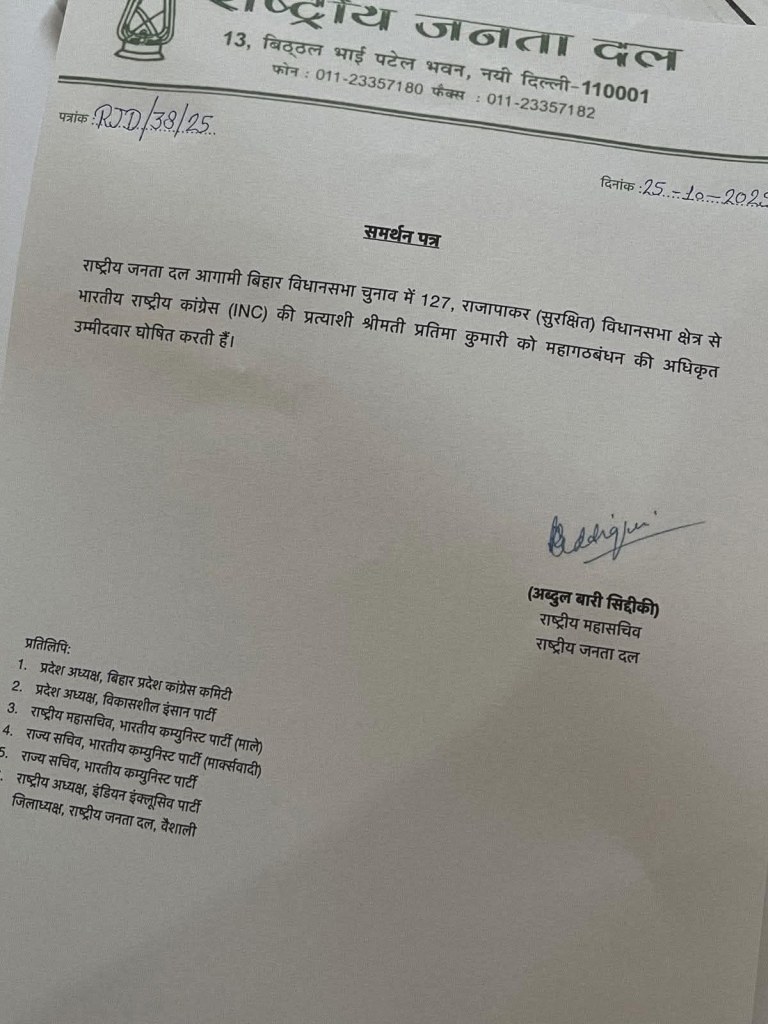 राष्ट्रीय जनता दल
13, बिठ्ठल भाई पटेल भवन, नयी दिल्ली-110001
फोन : 011-23357180 फैक्स : 011-23357182
पत्रांक : RJD/38/25
दिनांक : 25-10-2025
समर्थन पत्र
राष्ट्रीय जनता दल आगामी बिहार विधानसभा चुनाव में 127, राजापाकर (सुरक्षित) विधानसभा क्षेत्र से
भारतीय राष्ट्रीय कांग्रेस (INC) की प्रत्याशी श्रीमती प्रतिमा कुमारी को महागठबंधन की अधिकृत
उम्मीदवार घोषित करती हैं।
(अब्दुल बारी सिद्दीकी)
राष्ट्रीय महासचिव
राष्ट्रीय जनता दल
प्रतिलिपि:
1. प्रदेश अध्यक्ष, बिहार प्रदेश कांग्रेस कमिटी
2. प्रदेश अध्यक्ष, विकासशील इंसान पार्टी
3. राष्ट्रीय महासचिव, भारतीय कम्युनिस्ट पार्टी (माले)
4. राज्य सचिव, भारतीय कम्युनिस्ट पार्टी (मार्क्सवादी)
5. राज्य सचिव, भारतीय कम्युनिस्ट पार्टी
राष्ट्रीय अध्यक्ष, इंडियन इंक्लूसिव पार्टी
जिलाध्यक्ष, राष्ट्रीय जनता दल, वैशाली